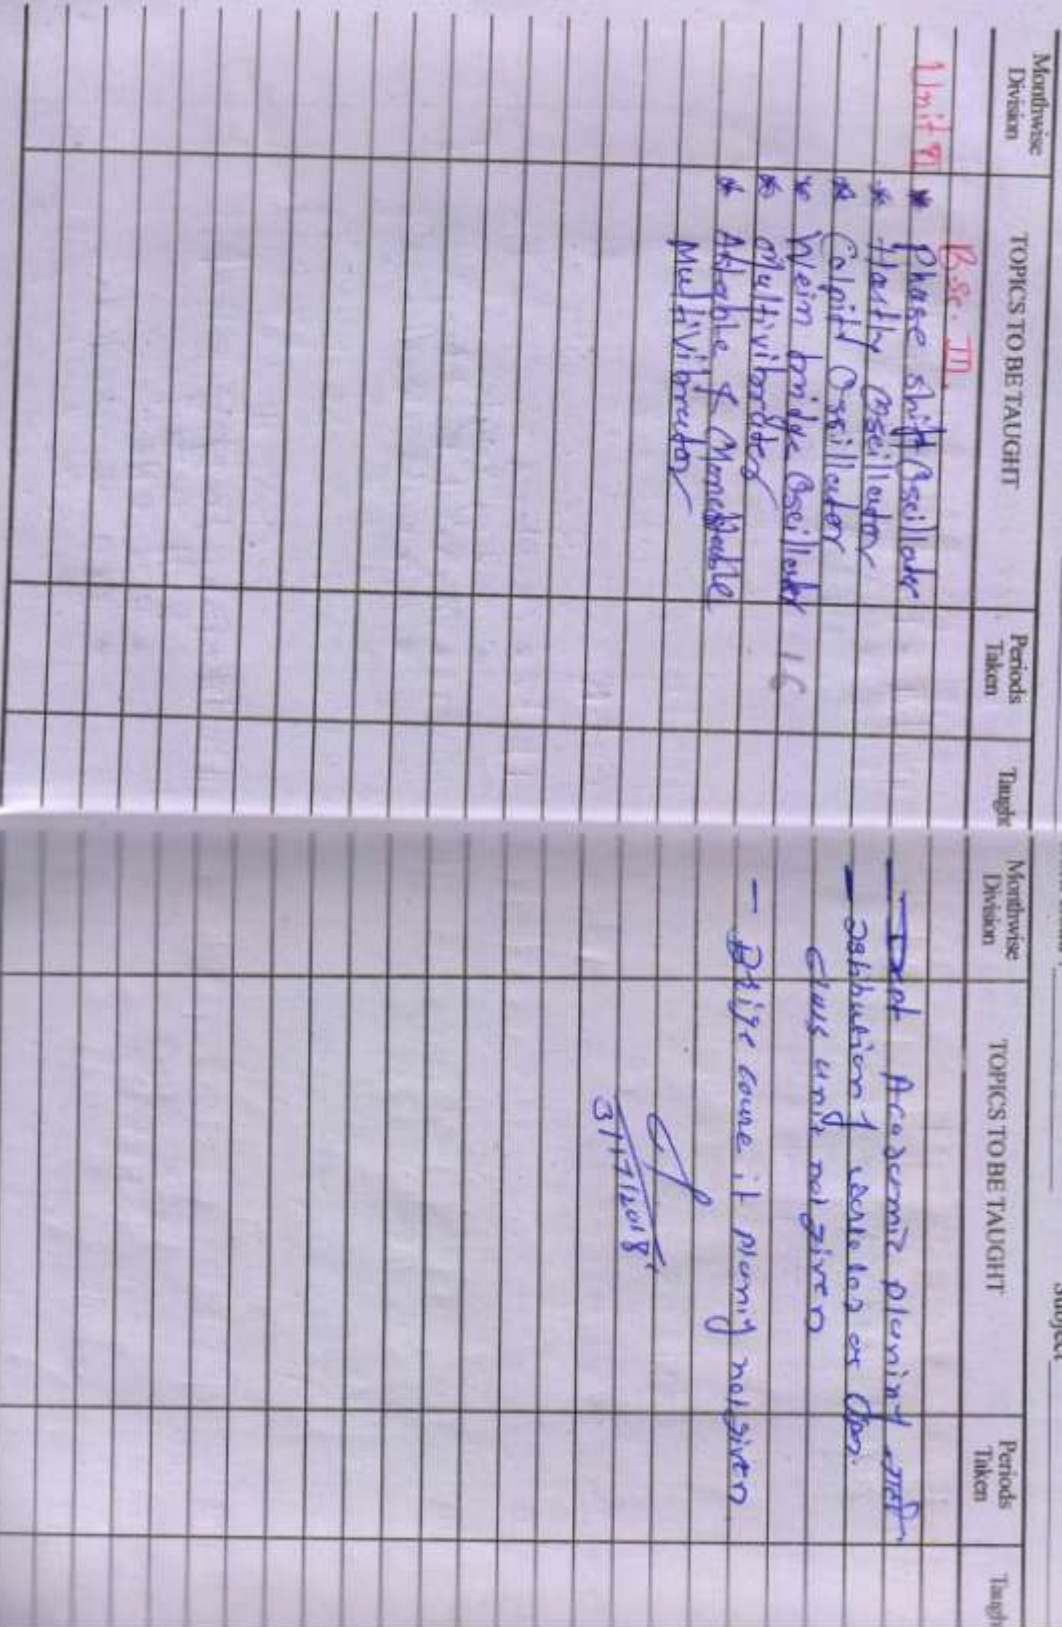 Monthwise Division
TOPICS TO BE TAUGHT
Periods Taken
Taught
B.Sc. III.
Unit
* Phase shift Oscillator
* Hastly Oscillator
* Colpitt Oscillator
* Wein bridge Oscillator 16
* Multivibrator
* Astable & Monostable
Multivibrator
Subject
Monthwise Division
TOPICS TO BE TAUGHT
Periods Taken
Taugh
Academic planing नाही
unit not given
not given
31/7/2018